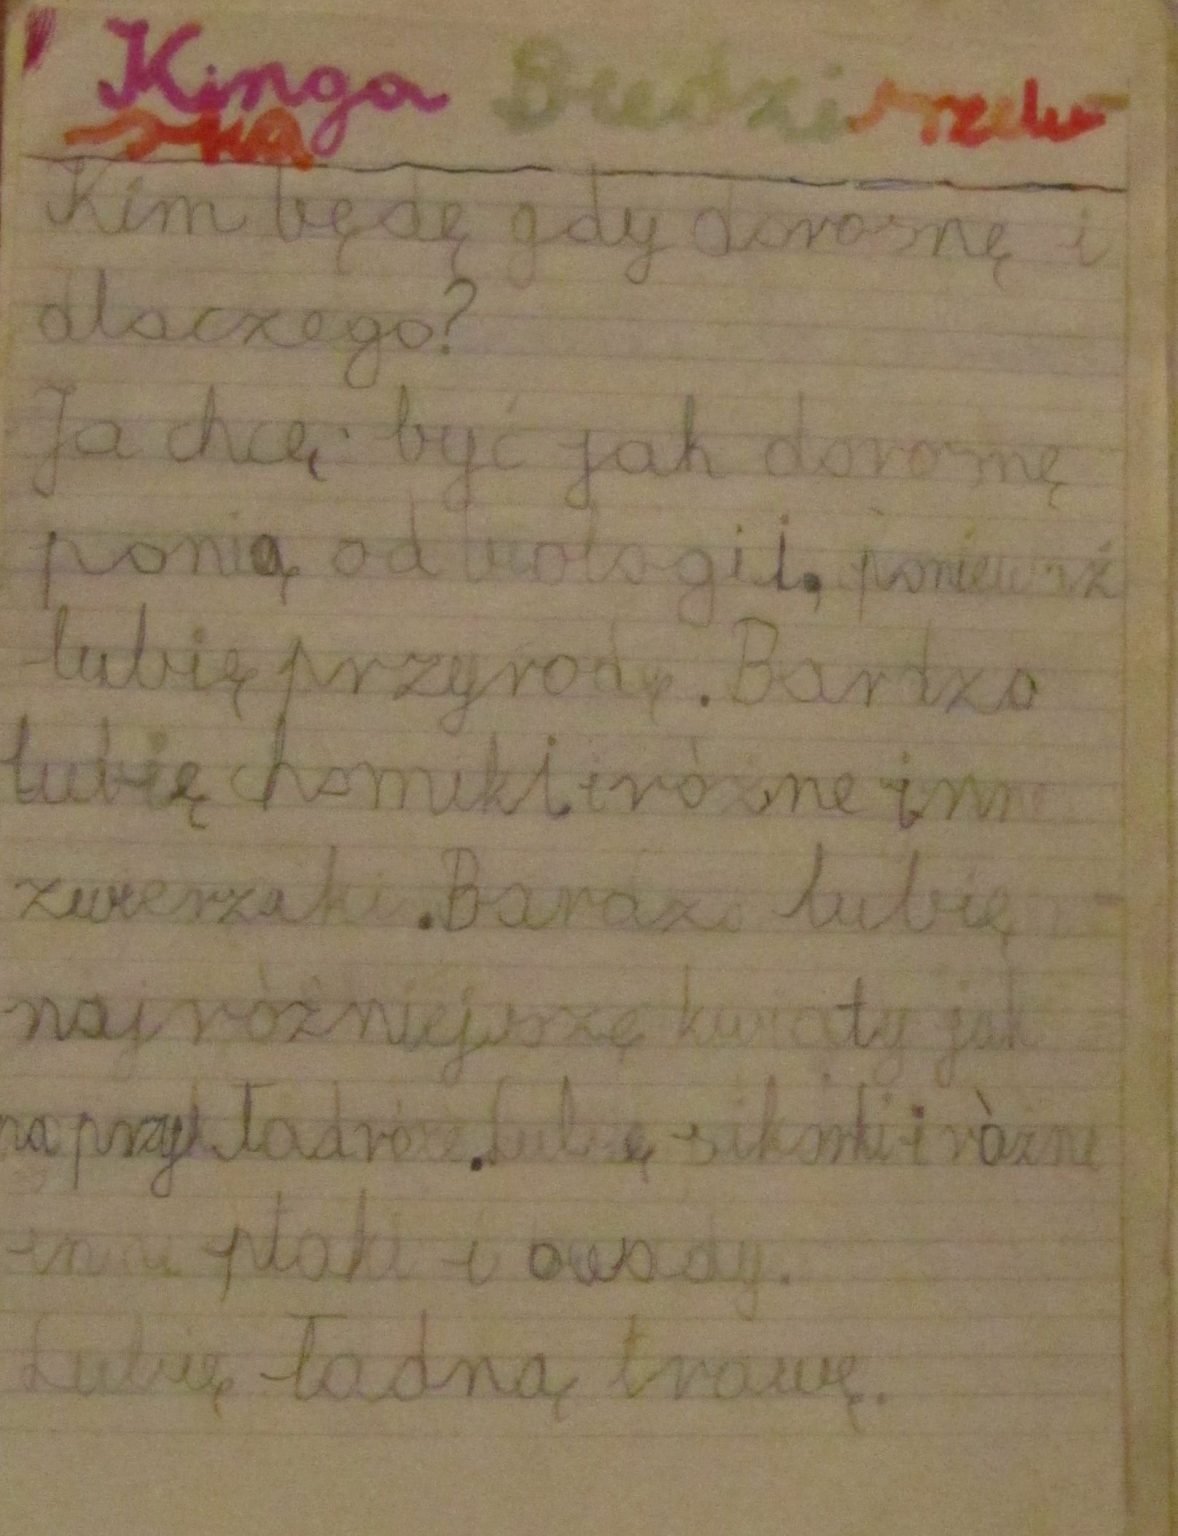 Kinga Biedzi szelw
ska
Kim będę gdy dorosnę i
dlaczego?
Ja chcę być jak dorosnę
panią od biologii, ponieważ
lubię przyrodę. Bardzo
lubię chomiki i różne inne
zwierzaki. Bardzo lubię
najróżniejszę kwiaty jak
na przykład róże. Lubię sikorki i różne
inne ptaki i owady.
Lubię ładną trawę.